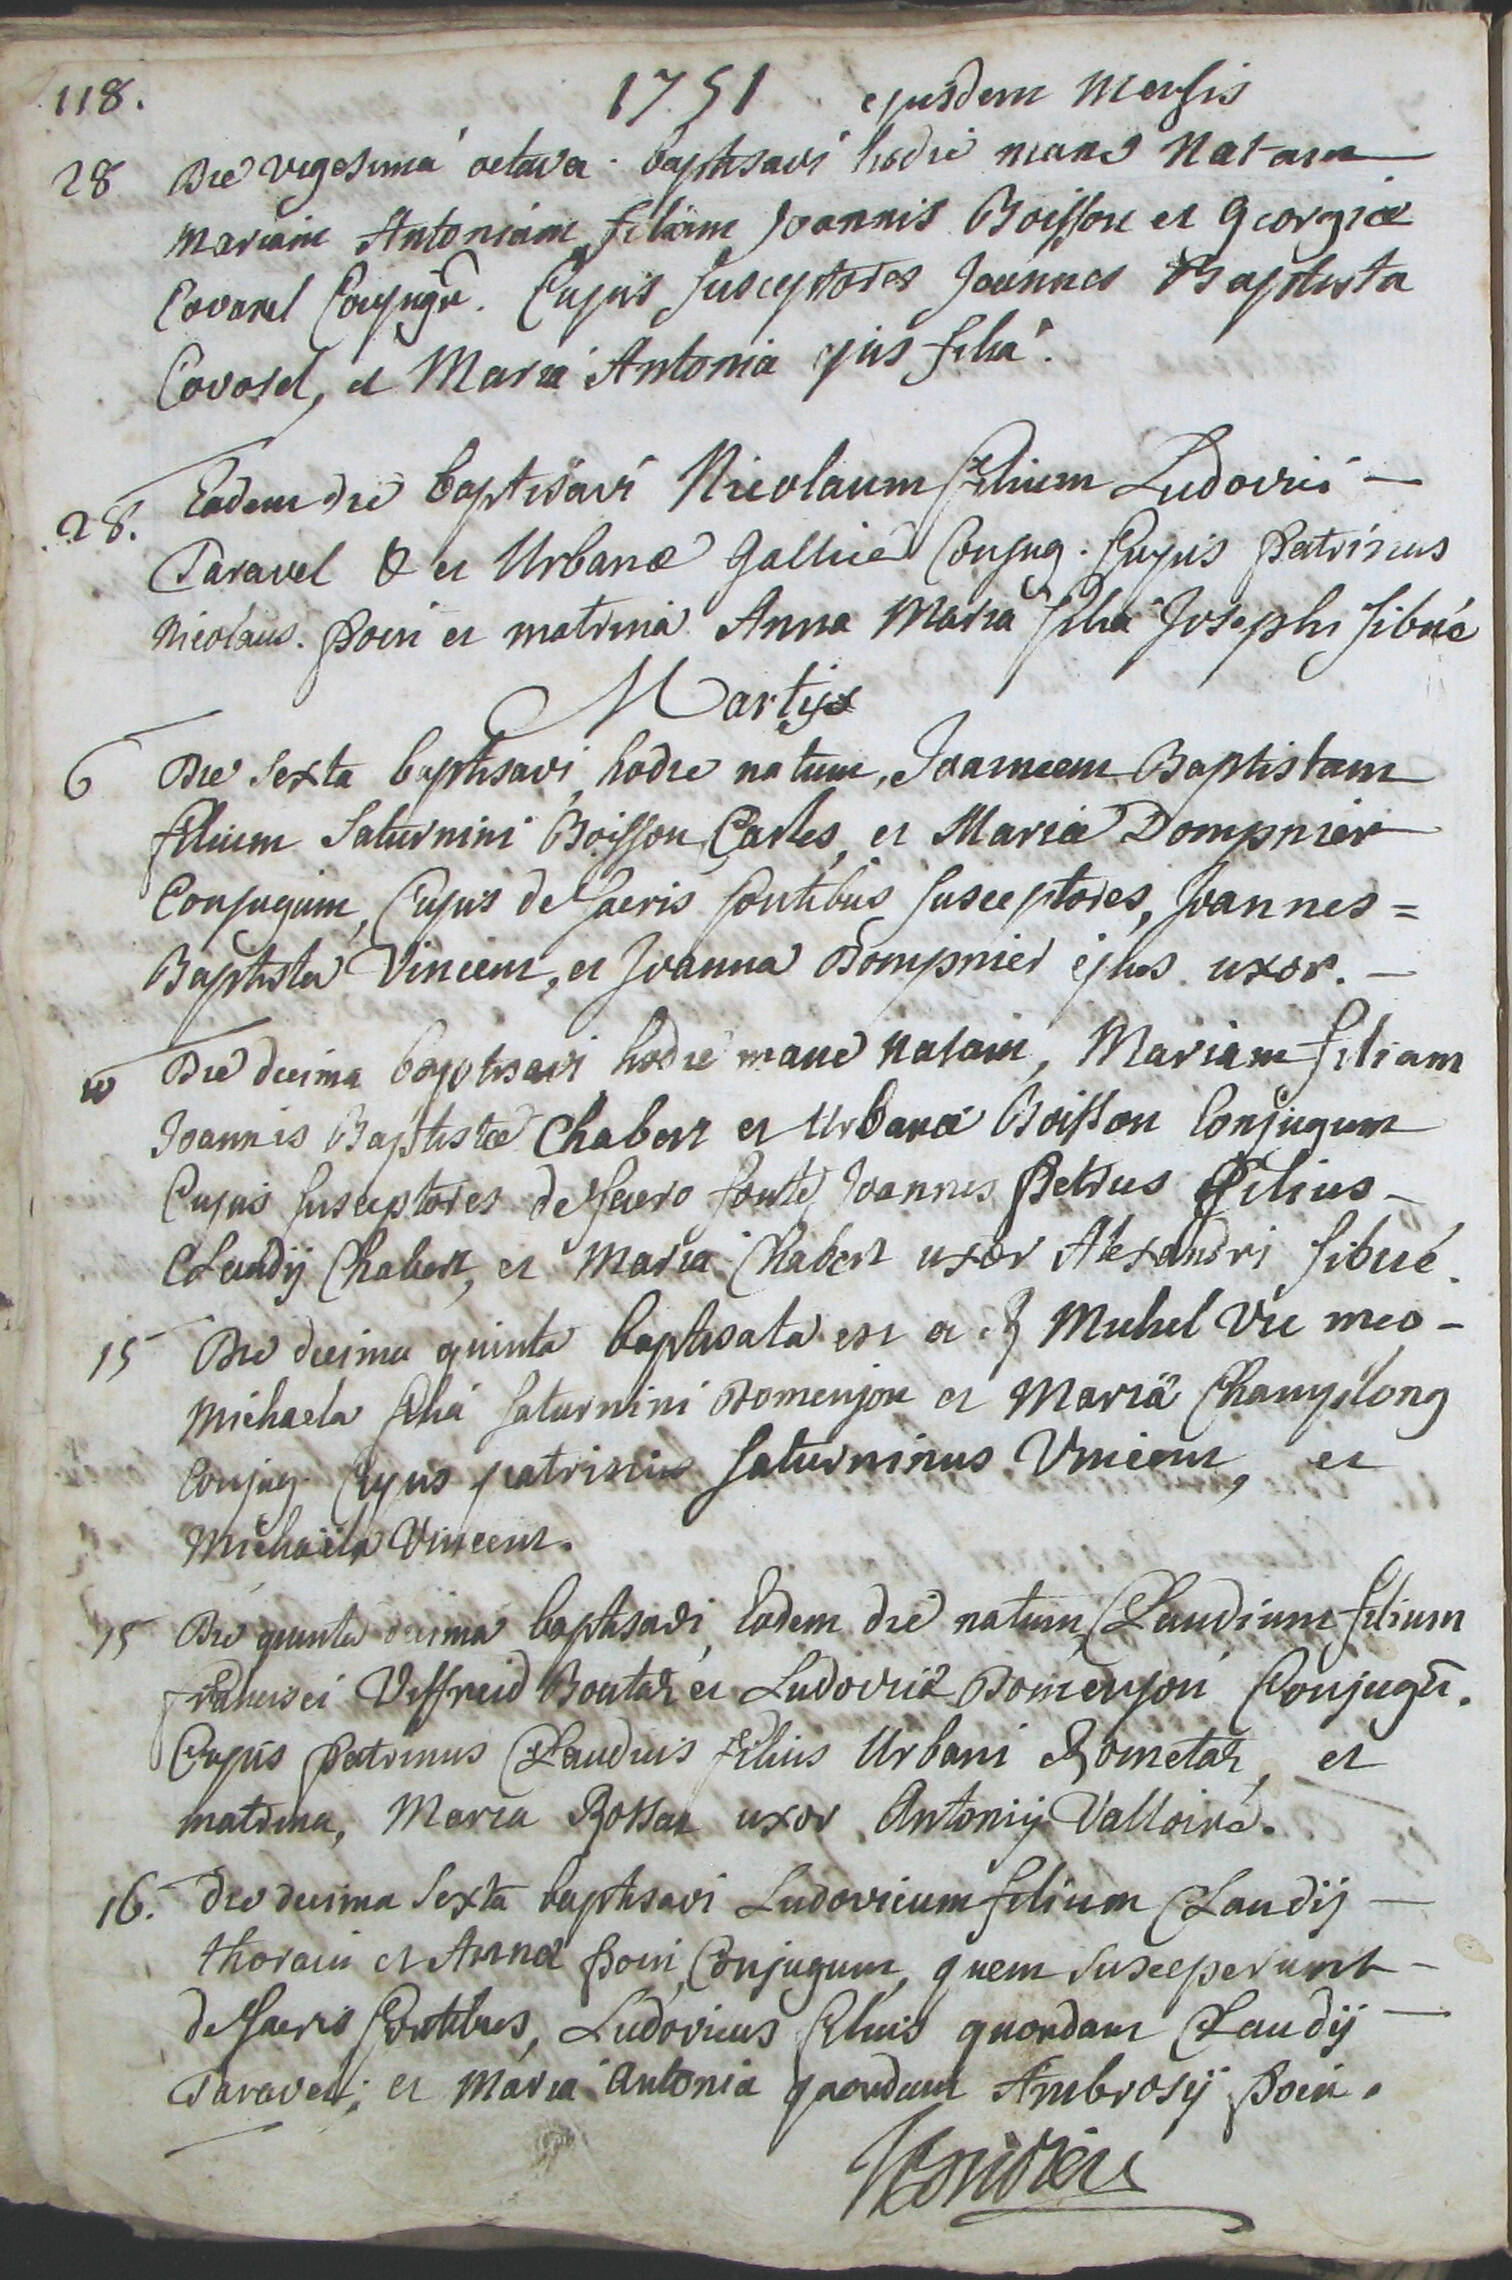 118. 1751 ejusdem Mensis
28 Die vigesima octava baptisavi hodie mane Natam
Mariam Antoniam filiam Joannis Boisson et Georgiæ
Covarel Conjugũ. Cujus susceptores Joannes Baptista
Covarel, et Maria Antonia ejus filia.
28. Eadem die baptisavi Nicolaum filium Ludovici
Taravel & et Urbanæ Gallice Conjug. Cujus Patrinus
Nicolaus. Poin et matrina Anna Maria filia Josephi Sibué
Martij
6 Die Sexta baptisavi, hodie natum, Joannem Baptistam
filium Saturnini Boisson Carles, et Mariæ Dompnier
Conjugum, Cujus de sacris fontibus susceptores, Joannes=
Baptista Vincent, et Joanna Dompnier ejus uxor.
10 Die decima baptisavi hodie mane natam, Mariam filiam
Joannis Baptistæ Chabert et Urbanæ Boisson Conjugum
Cujus susceptores de sacro fonte, Joannes Petrus filius
Claudij Chabert, et Maria Chabert uxor Alexandri Sibué.
15 Die decima quinta baptisata est a Michel Vic meo
Michaela filia Saturnini Domenjon et Mariæ Champlong
Conjug. Cujus patrinus Saturninus Vincent, et
Michaela Vincent.
15 Die quinta decima baptisavi, Eodem die natum, Claudium filium
Francisci Veffreid Boutaz et Ludovicæ Domenjon Conjugũ.
Cujus Patrinus Claudius filius Urbani Rometaz, et
matrina, Maria Rossat uxor Antonij Valloire.
16. Die decima Sexta baptisavi Ludovicum filium Claudij
Thorain et Annæ Poin, Conjugum, quem susceperunt
de sacris fontibus, Ludovicus filius quondam Claudij
Taravel; et Maria Antonia quondam Ambrosij Poin.